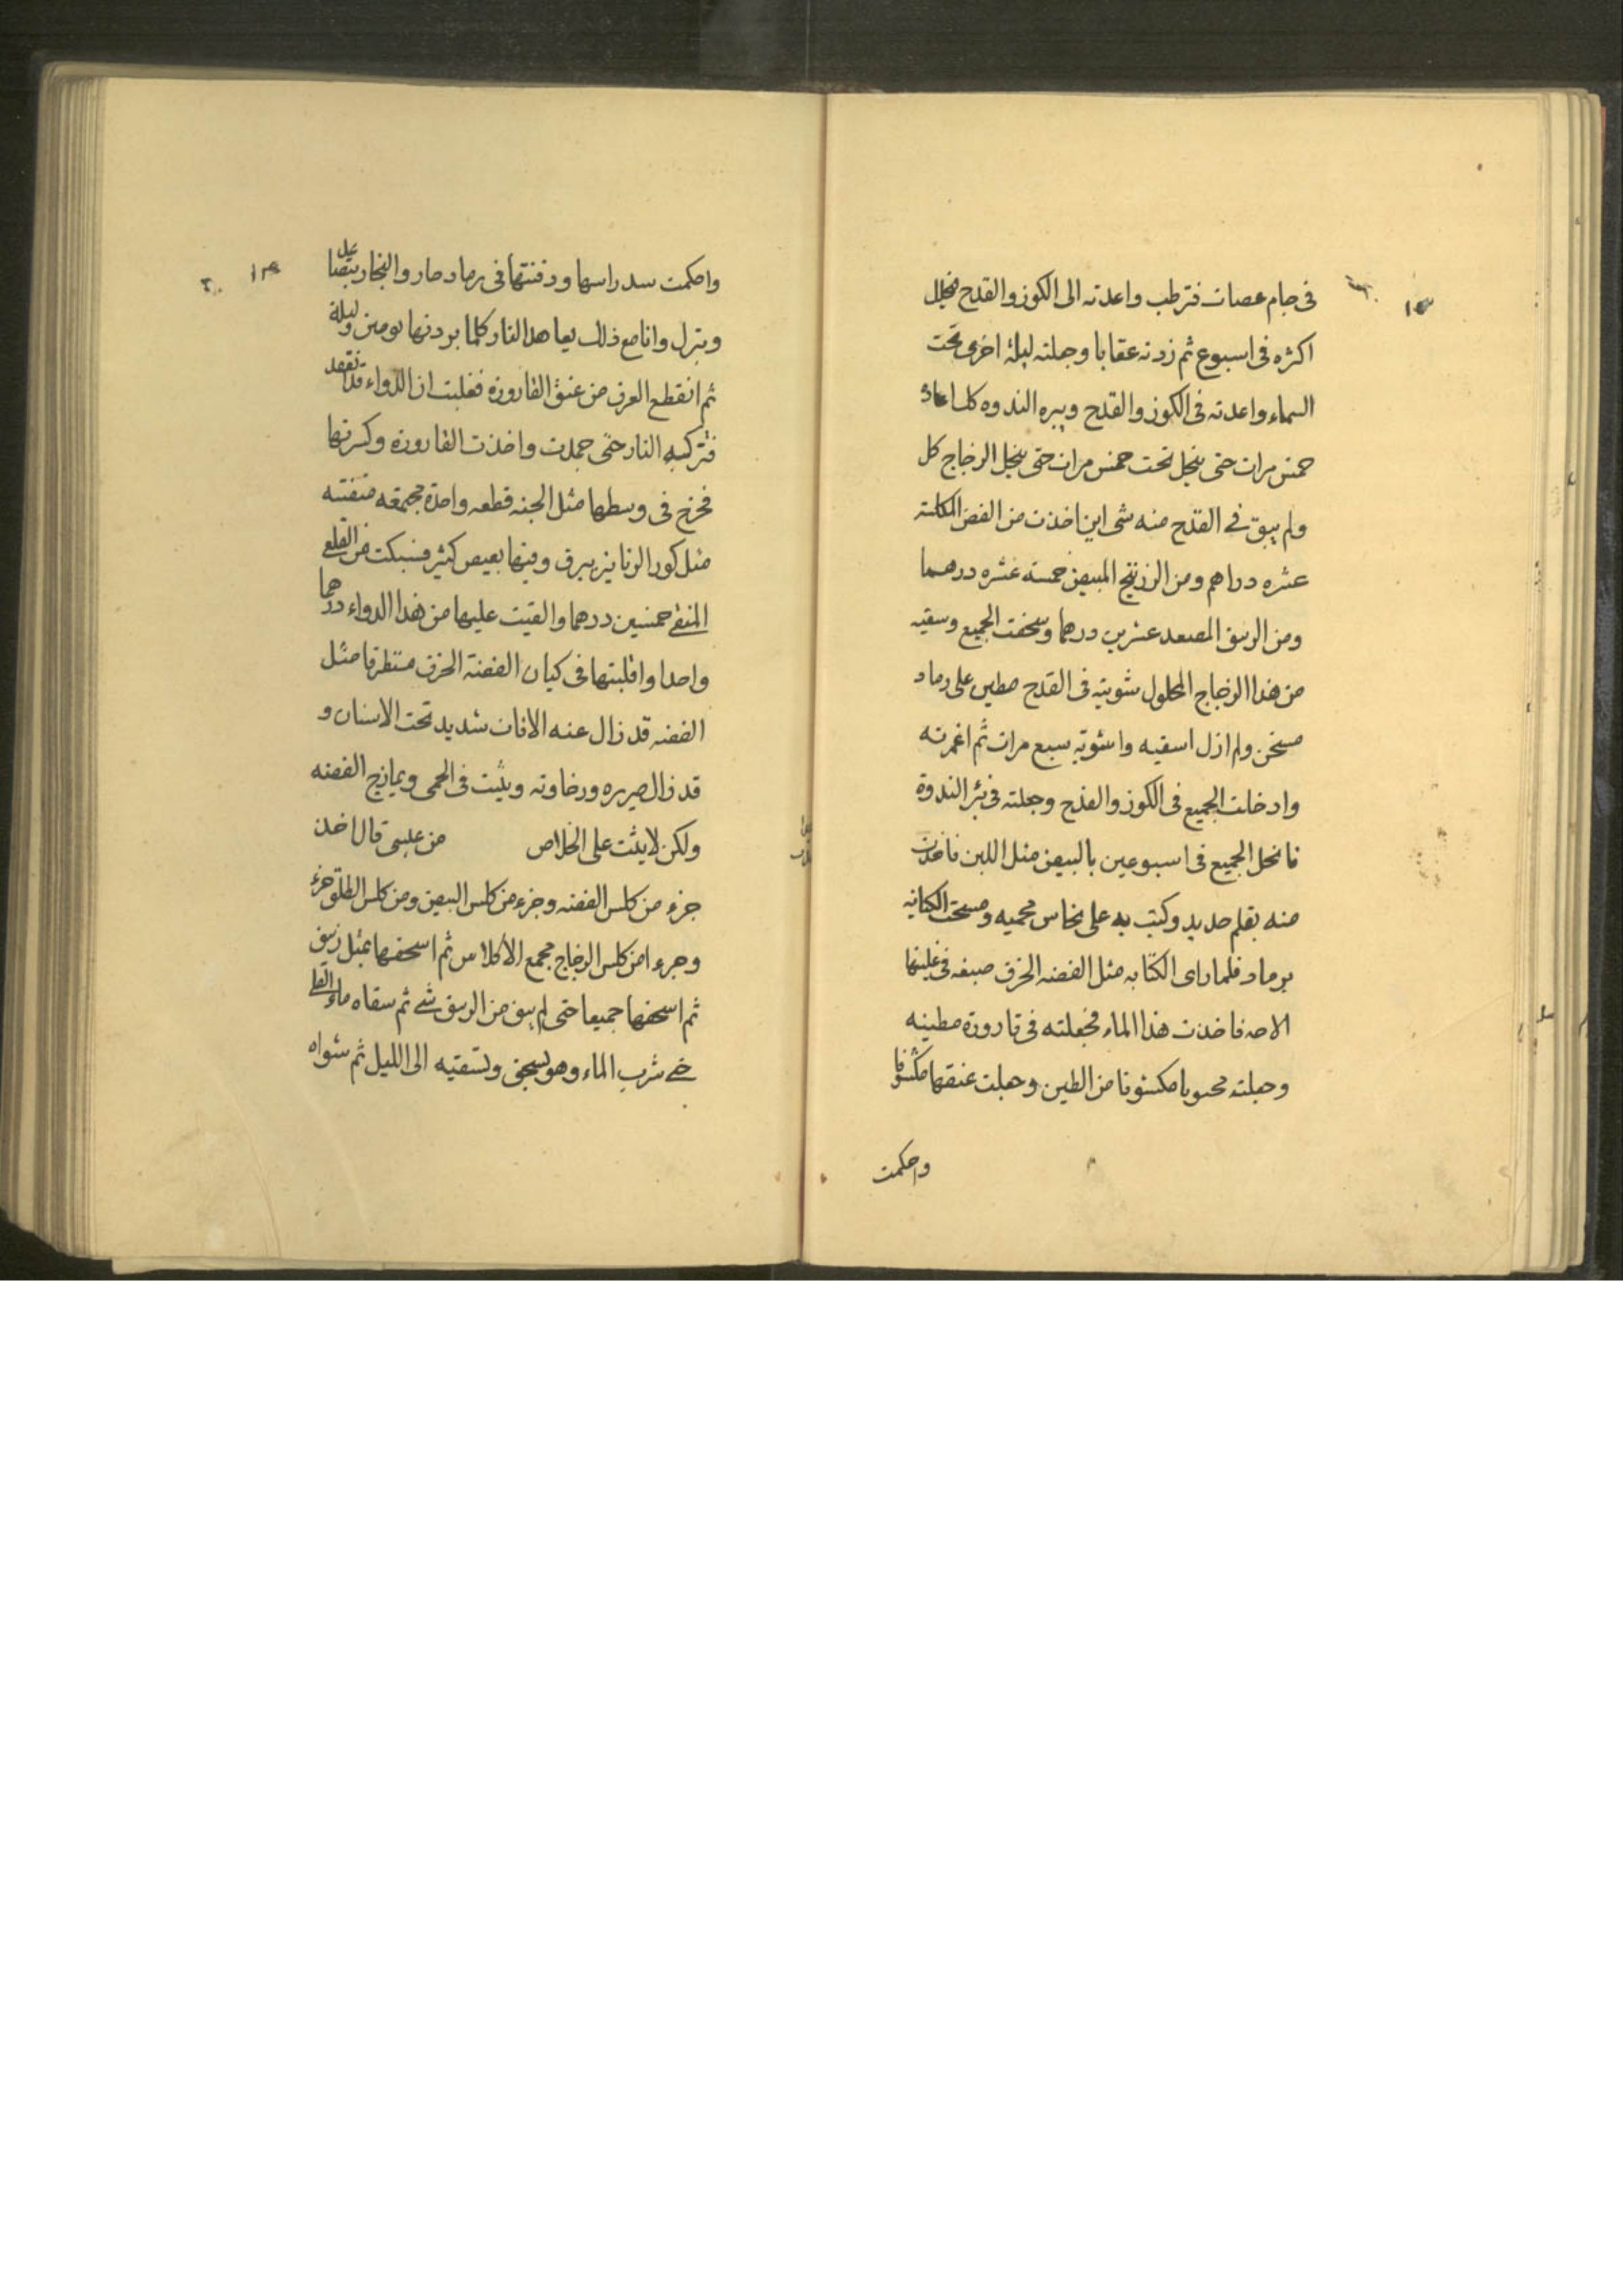 فى جام عصات فترطب واعدته الى الكوز والقدح فيحل
اكثره فى اسبوع ثم زدته عقابا وجعلته ليلة اخرى تحت
السماء واعدته فى الكوز والقدح وبيره الندوه كلما عاد
خمس مرات حتى ينحل تحت خمس مرات حتى ينحل الزجاج كل
ولم يبق فى القدح منه شى اين اخذت من الفضة المكلسة
عشره دراهم ومن الزرنيخ المبيض خمسة عشره درهما
ومن الزيبق المصعد عشرين درهما وسحقت الجميع وسقيه
من هذا الزجاج المحلول شويته فى القدح مطين على رماد
مسخن ولم ازل اسقيه واشويه سبع مرات ثم اغمرته
وادخلت الجميع فى الكوز والقدح وجعلته فى بئر الندوة
فانحل الجميع فى اسبوعين بالبيض مثل اللبن فاخذت
منه بقلم حديد وكتبت به على نحاس محميه ومسحت الكتابة
برماد فلما راى الكتابه مثل الفضه الحرق صبغه فى غلبتها
فاخذت هذا الماء فجعلته فى قارورة مطينه
وجعلته مكشوفا من الطين وجعلت عنقها مكشوفا
واحكمت
واحكمت سد راسها ودفنتها فى رماد حار والبخار يتصاعد
وينزل وانا مع ذلك يعاهد النار كلما برد نها يومين وليلة
ثم انقطع العرق من عنق القارورة فغلبت ان الدواء قد انعقد
فتركته النار حتى جمدت واخذت القارورة وكسرتها
فخرج فى وسطها مثل الجبنه قطعه واحدة مجتمعه متفتته
مثل كور الزنانيز يبرق وفيها بصيص كثير فسبكت من القلعى
المنقى خمسين درهما والقيت عليها من هذا الدواء درهما
واحدا واقلبتها فى كيان الفضة الحرق متطرقا مثل
الفضه قد زال عنه الافات شديد تحت الاسنان و
قد زال صريره ورخاوته ويثبت فى الحمى ويمازج الفضه
ولكن لا يثبت على الخلاص من عيسى قال اخذ
جزء من كلس الفضه وجزء من كلس البيض ومن كلس الطلق جزء
وجزءا من كلس الزجاج مجمع الاكلاس ثم اسحقها بمثل زيبق
ثم اسحقها جميعا حتى لم يبق من الزيبق شى ثم سقاه ماء القلى
حتى شرب الماء وهو يسحق وتسقيه الى الليل ثم شواه